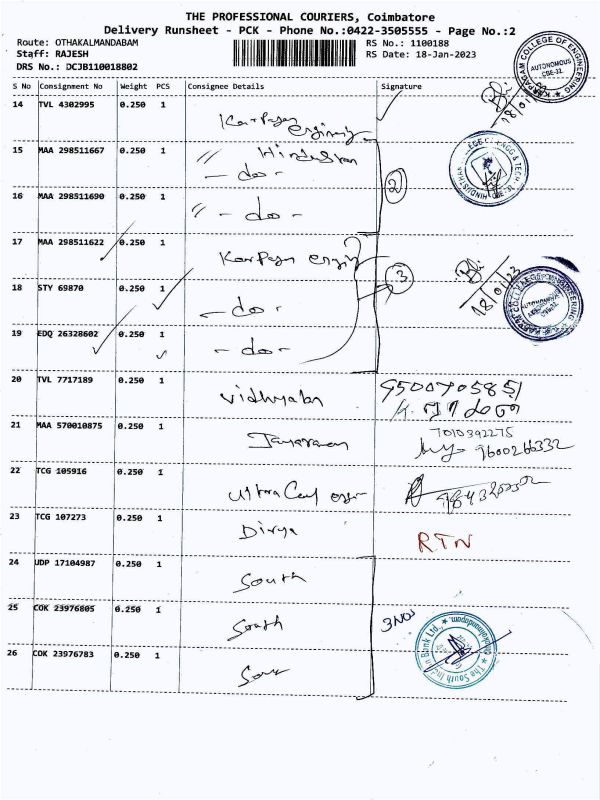 THE PROFESSIONAL COURIERS, Coimbatore
Delivery Runsheet - PCK - Phone No.:0422-3505555 - Page No.:2
Route: OTHAKALMANDABAM RS No.: 1100188
Staff: RAJESH RS Date: 18-Jan-2023
DRS No.: DCJB110018802
KARPAGAM COLLEGE OF ENGINEERING AUTONOMOUS CBE-32.
S No Consignment No Weight PCS Consignee Details Signature
14 TVL 4302995 0.250 1
18/01
15 MAA 298511667 0.250 1 " Hindustan
- do -
HINDUSTHAN
16 MAA 298511690 0.250 1 " - do -
2
17 MAA 298511622 0.250 1
3
18/01/23
18 STY 69870 0.250 1 - do -
19 EDQ 26328602 0.250 1 - do -
20 TVL 7717189 0.250 1 Vidhyaba 9500705851
21 MAA 570010875 0.250 1 Jayaraman 7010392275
9600266332
22 TCG 105916 0.250 1
23 TCG 107273 0.250 1 Divya RTN
24 UDP 17104987 0.250 1 South
25 COK 23976805 0.250 1 South 3 NOS
The South Indian Bank Ltd., Othakalmandapam
26 COK 23976783 0.250 1